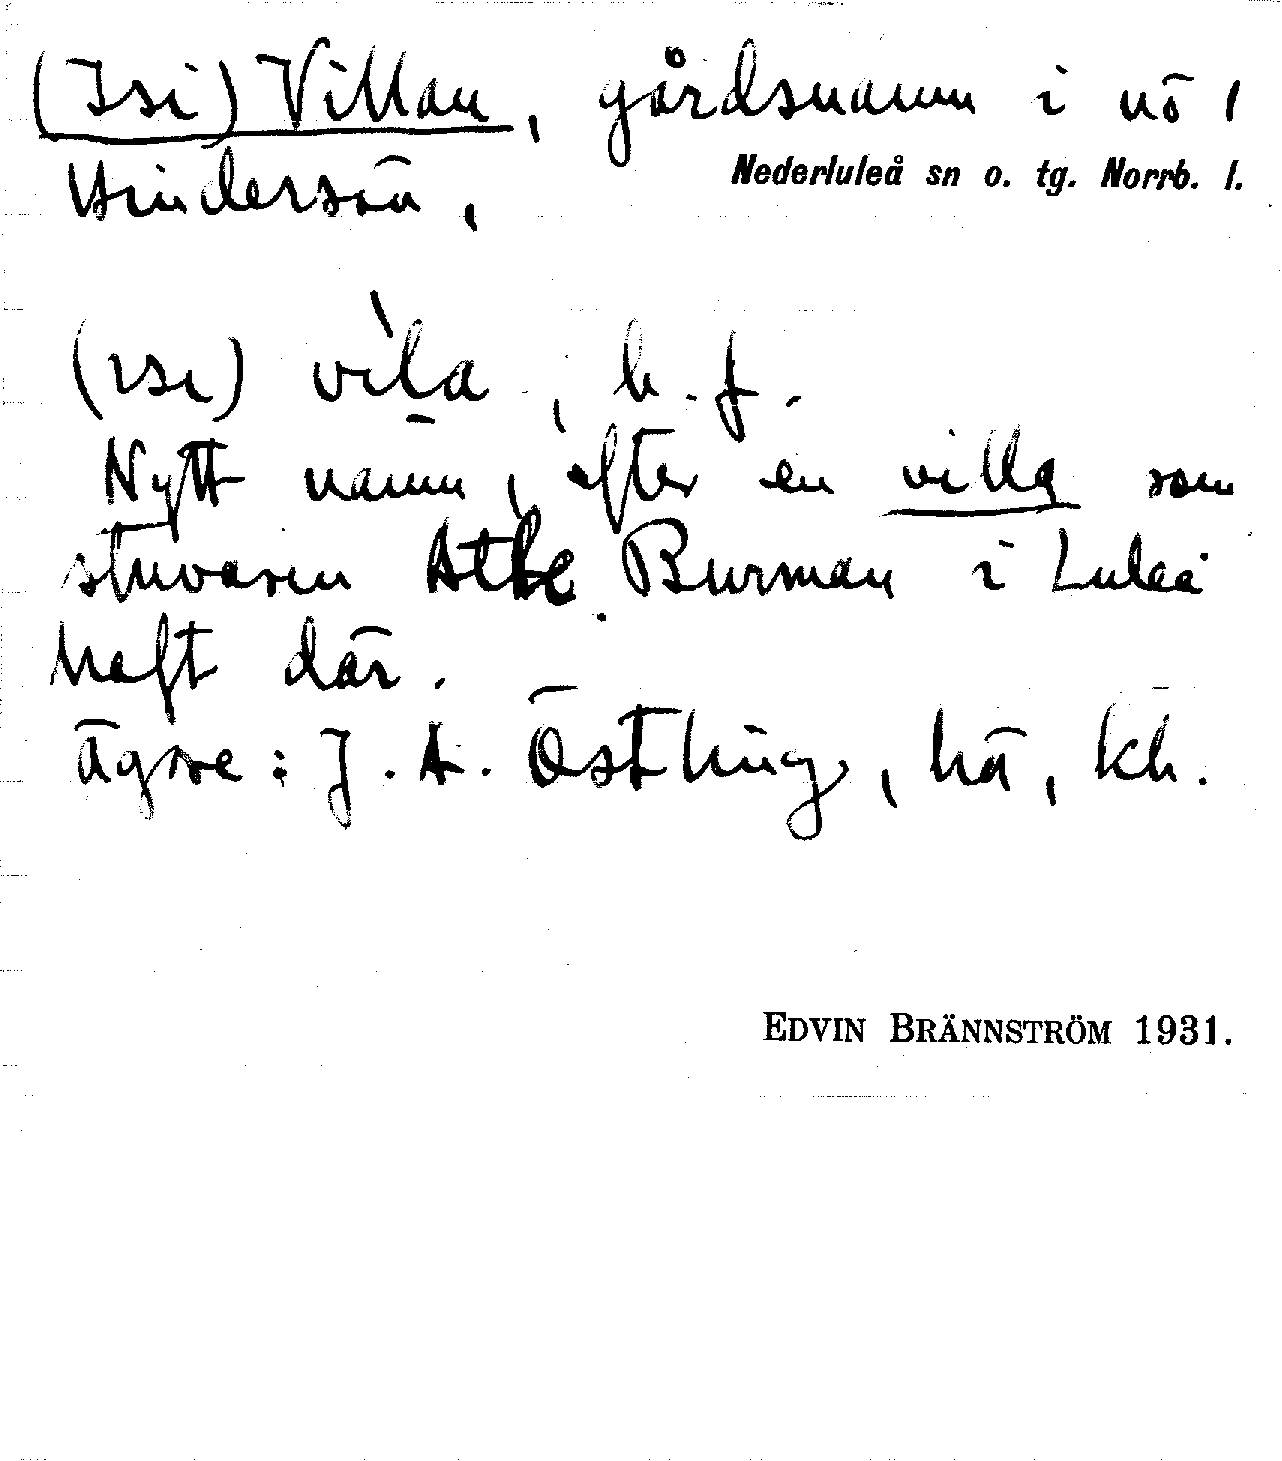 (Isi) Villan, gårdsnamn i nö /
Hindersön,
Nederluleå sn o. tg. Norrb. l.
(ısı) vìla̱, b. f.
Nytt namn, efter en villa som
stuvaren Atle Burman i Luleå
haft där.
Ägare: J. A. Östling, hä, kh.
EDVIN BRÄNNSTRÖM 1931.